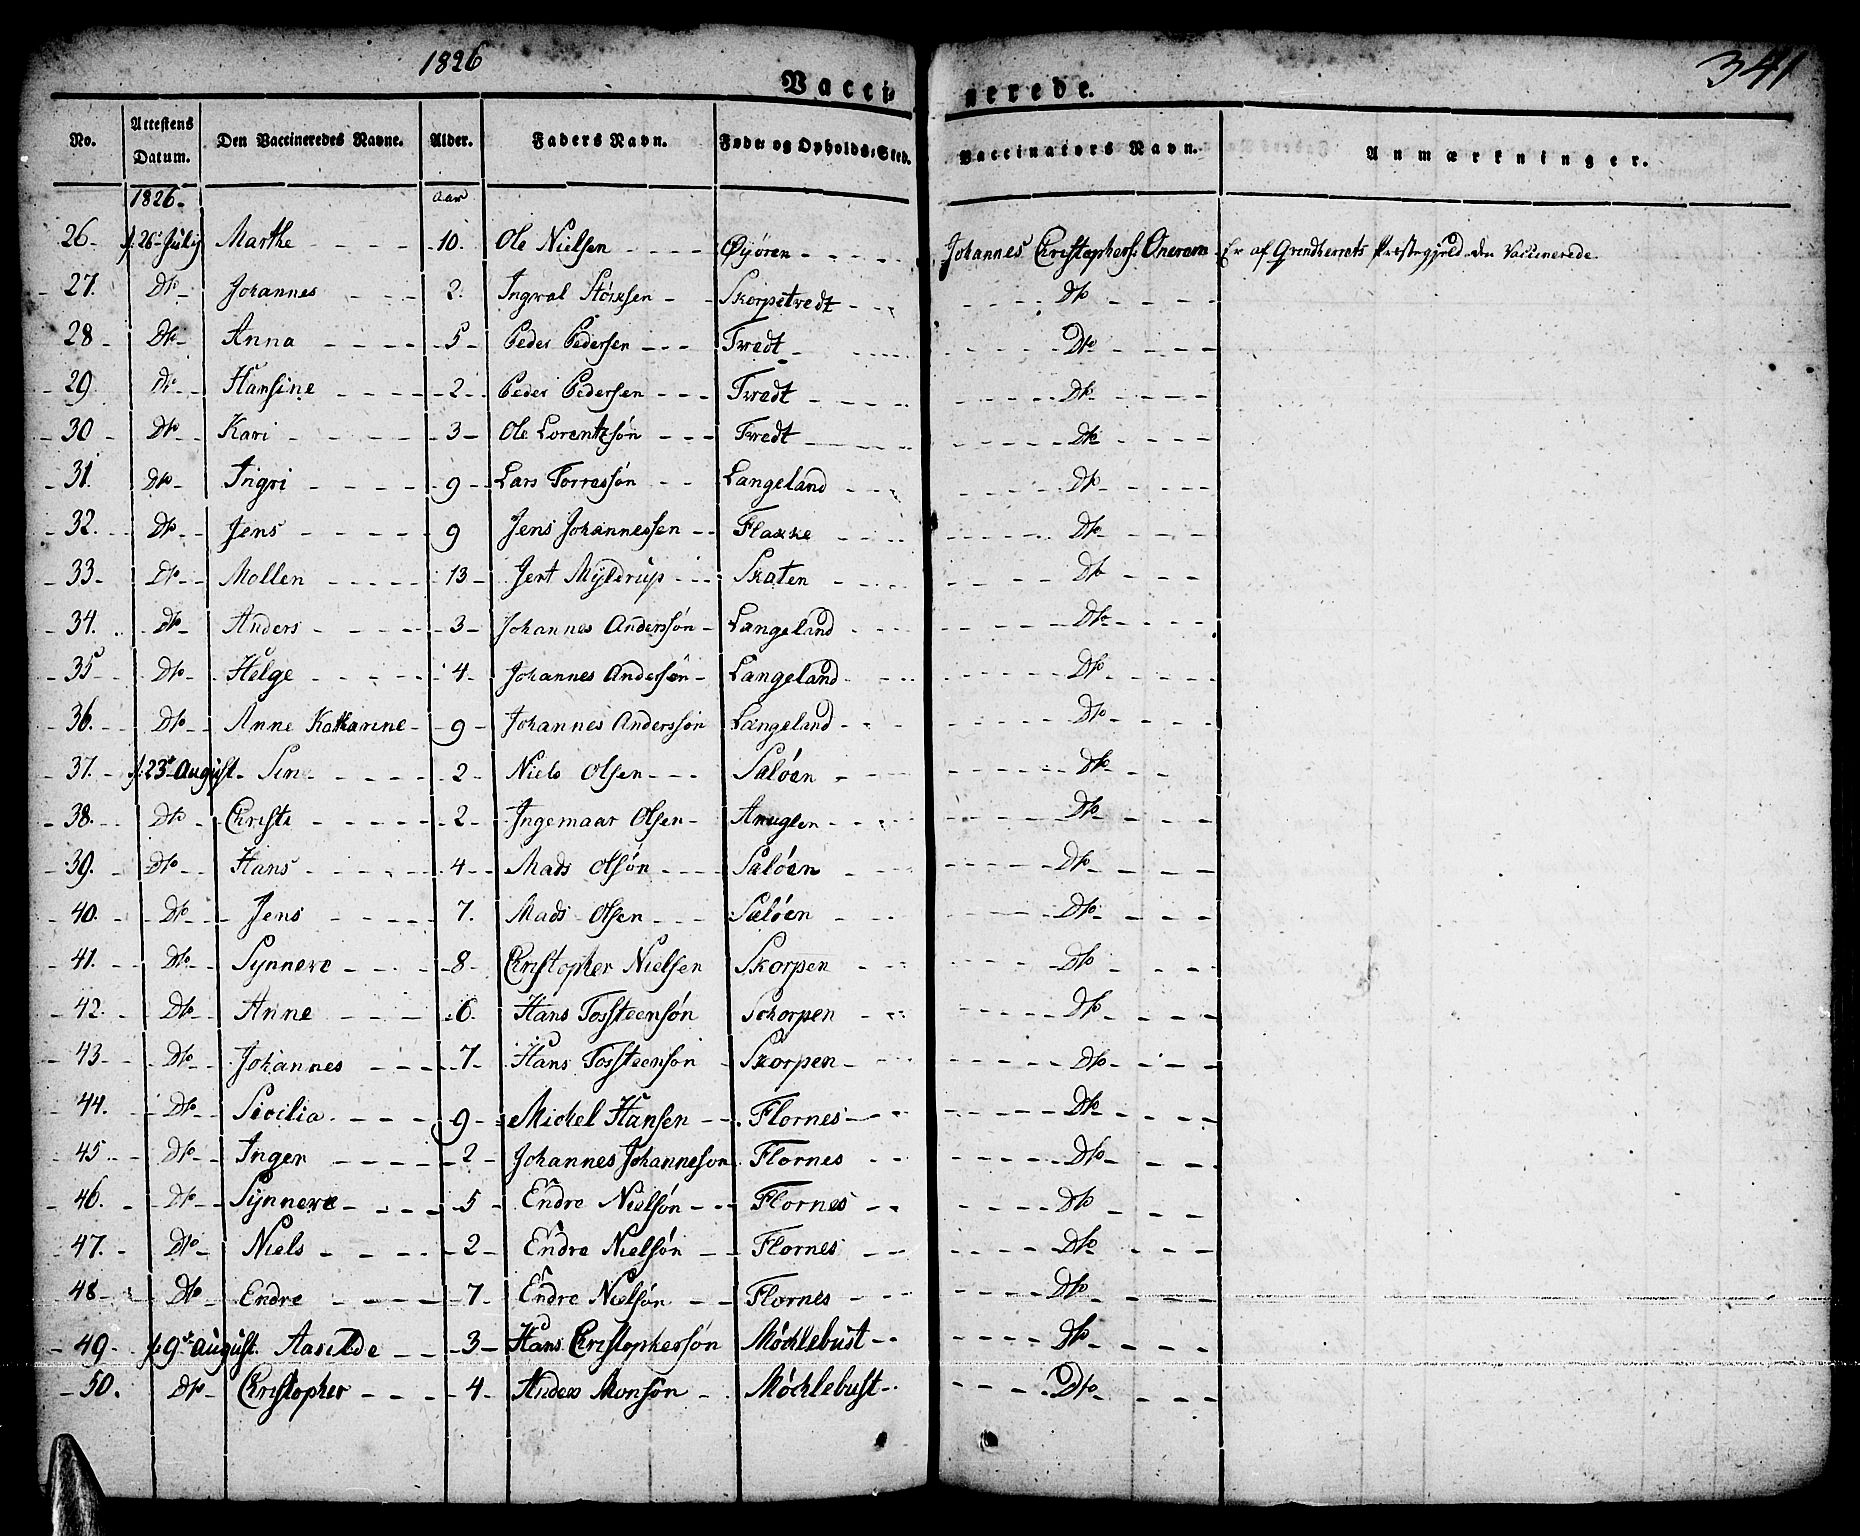 1826
341
Vaccinerede.
No. Attestens Datum. Den Vaccineredes Navne. Alder. Faders Navn. Føde- og Opholds-Sted. Vaccinators Navn. Anmærkninger.
1826. Aar
26 26 July Marthe 10. Ole Nielsen Øyjøren Johannes Christophers: Onerem Er af Præstegjeld den Vaccinerede
27. Do Johannes 2. Ingwal Skorpetvedt Do
28 Do Anna 5 Peder Pedersen Tvedt Do
29 Do Hansine 2 Peder Pedersen Tvedt Do
30 Do Kari 3 Ole Lorentzøn Tvedt Do
31. Do Ingri 9 Lars Torressøn Langeland Do
32. Do Jens 9 Jens Johannessen Flakke Do
33 Do Mollen 13 Jert Myldrup Skaten Do
34. Do Anders 3 Johannes Anderssøn Langeland Do
35 Do Helge 4 Johannes Andersøn Langeland Do
36. Do Anne Katharine 9 Johannes Anderssøn Langeland Do
37. 23 August 2 Niels Olsen Saløen Do
38. Do Christi 2 Ingemaar Olsen Anuglen Do
39. Do Hans 4 Mads Olsøn Saløen Do
40. Do Jens 7. Mads Olsen Sæløen Do
41. Do Synneve 8 Christopher Nielsen Skorpen Do
42. Do Anne 6 Hans Tossteensøn Schorpen Do
43 Do Johannes 7 Hans Tossteensøn Skorpen Do
44. Do Sicilia 9 Mickel Hansen Flornes Do
45 Do Inger 2 Johannes Johanneson Flornes Do
46. Do Synneve 5 Endre Nielsøn Flornes Do
47. Do Niels 2 Endre Nielsøn Flornes Do
48 Do Endre 7 Endre Nielsøn Flornes Do
49 9 August. Aasilde 3 Hans Christophersøn Møchlebust Do
50. Do Christopher 4 Anders Monsøn Møchlebust Do